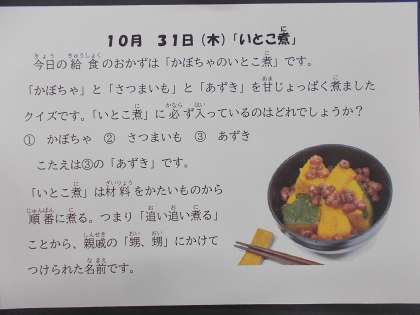 10月 31日(木)「いとこ煮」
今日の給食のおかずは「かぼちゃのいとこ煮」です。
「かぼちゃ」と「さつまいも」と「あずき」を甘じょっぱく煮ました
クイズです。「いとこ煮」に必ず入っているのはどれでしょうか?
① かぼちゃ ② さつまいも ③ あずき
こたえは③の「あずき」です。
「いとこ煮」は材料をかたいものから
順番に煮る。つまり「追い追い煮る」
ことから、親戚の「甥、甥」にかけて
つけられた名前です。